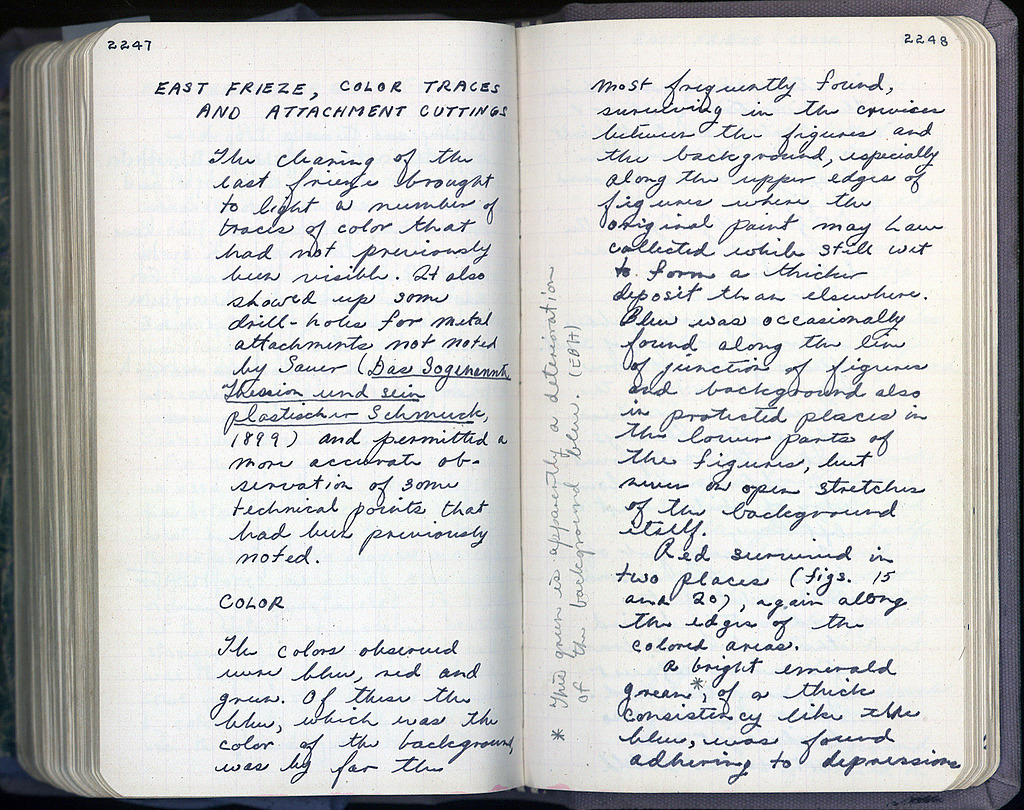 2247
EAST FRIEZE, COLOR TRACES
AND ATTACHMENT CUTTINGS
The cleaning of the
east frieze brought
to light a number of
traces of color that
had not previously
been visible. It also
showed up some
drill-holes for metal
attachments not noted
by Sauer (Das Sogenannte
Theseion und sein
plastischer Schmuck,
1899) and permitted a
more accurate ob-
servation of some
technical points that
had been previously
noted.
COLOR
The colors observed
were blue, red and
green. Of these the
blue, which was the
color of the background,
was by far the
2248
most frequently found,
surviving in the crevices
between the figures and
the background, especially
along the upper edges of
figures where the
original paint may have
collected while still wet
to form a thicker
deposit than elsewhere.
Blue was occasionally
found along the line
of junction of figures
and background also
in protected places in
the lower parts of
the figures, but
never on open stretches
of the background
itself.
Red survived in
two places (figs. 15
and 20), again along
the edges of the
colored areas.
A bright emerald
green*, of a thick
consistency like the
blue, was found
adhering to depressions
* This green is apparently a deterioration
of the background blue. (EBH)